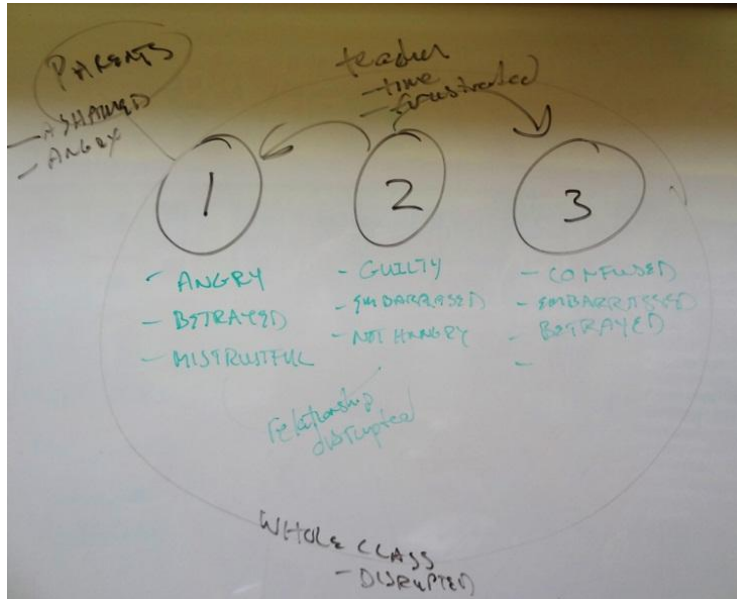 PARENTS
- ASHAMED
- ANGRY
teacher
- time
- frustrated
1
2
3
- ANGRY
- BETRAYED
- MISTRUSTFUL
- GUILTY
- EMBARRASED
- NOT HANGRY
- CONFUSED
- EMBARRASSED
- BETRAYED
-
relationship
disrupted
WHOLE CLASS
- DISRUPTED